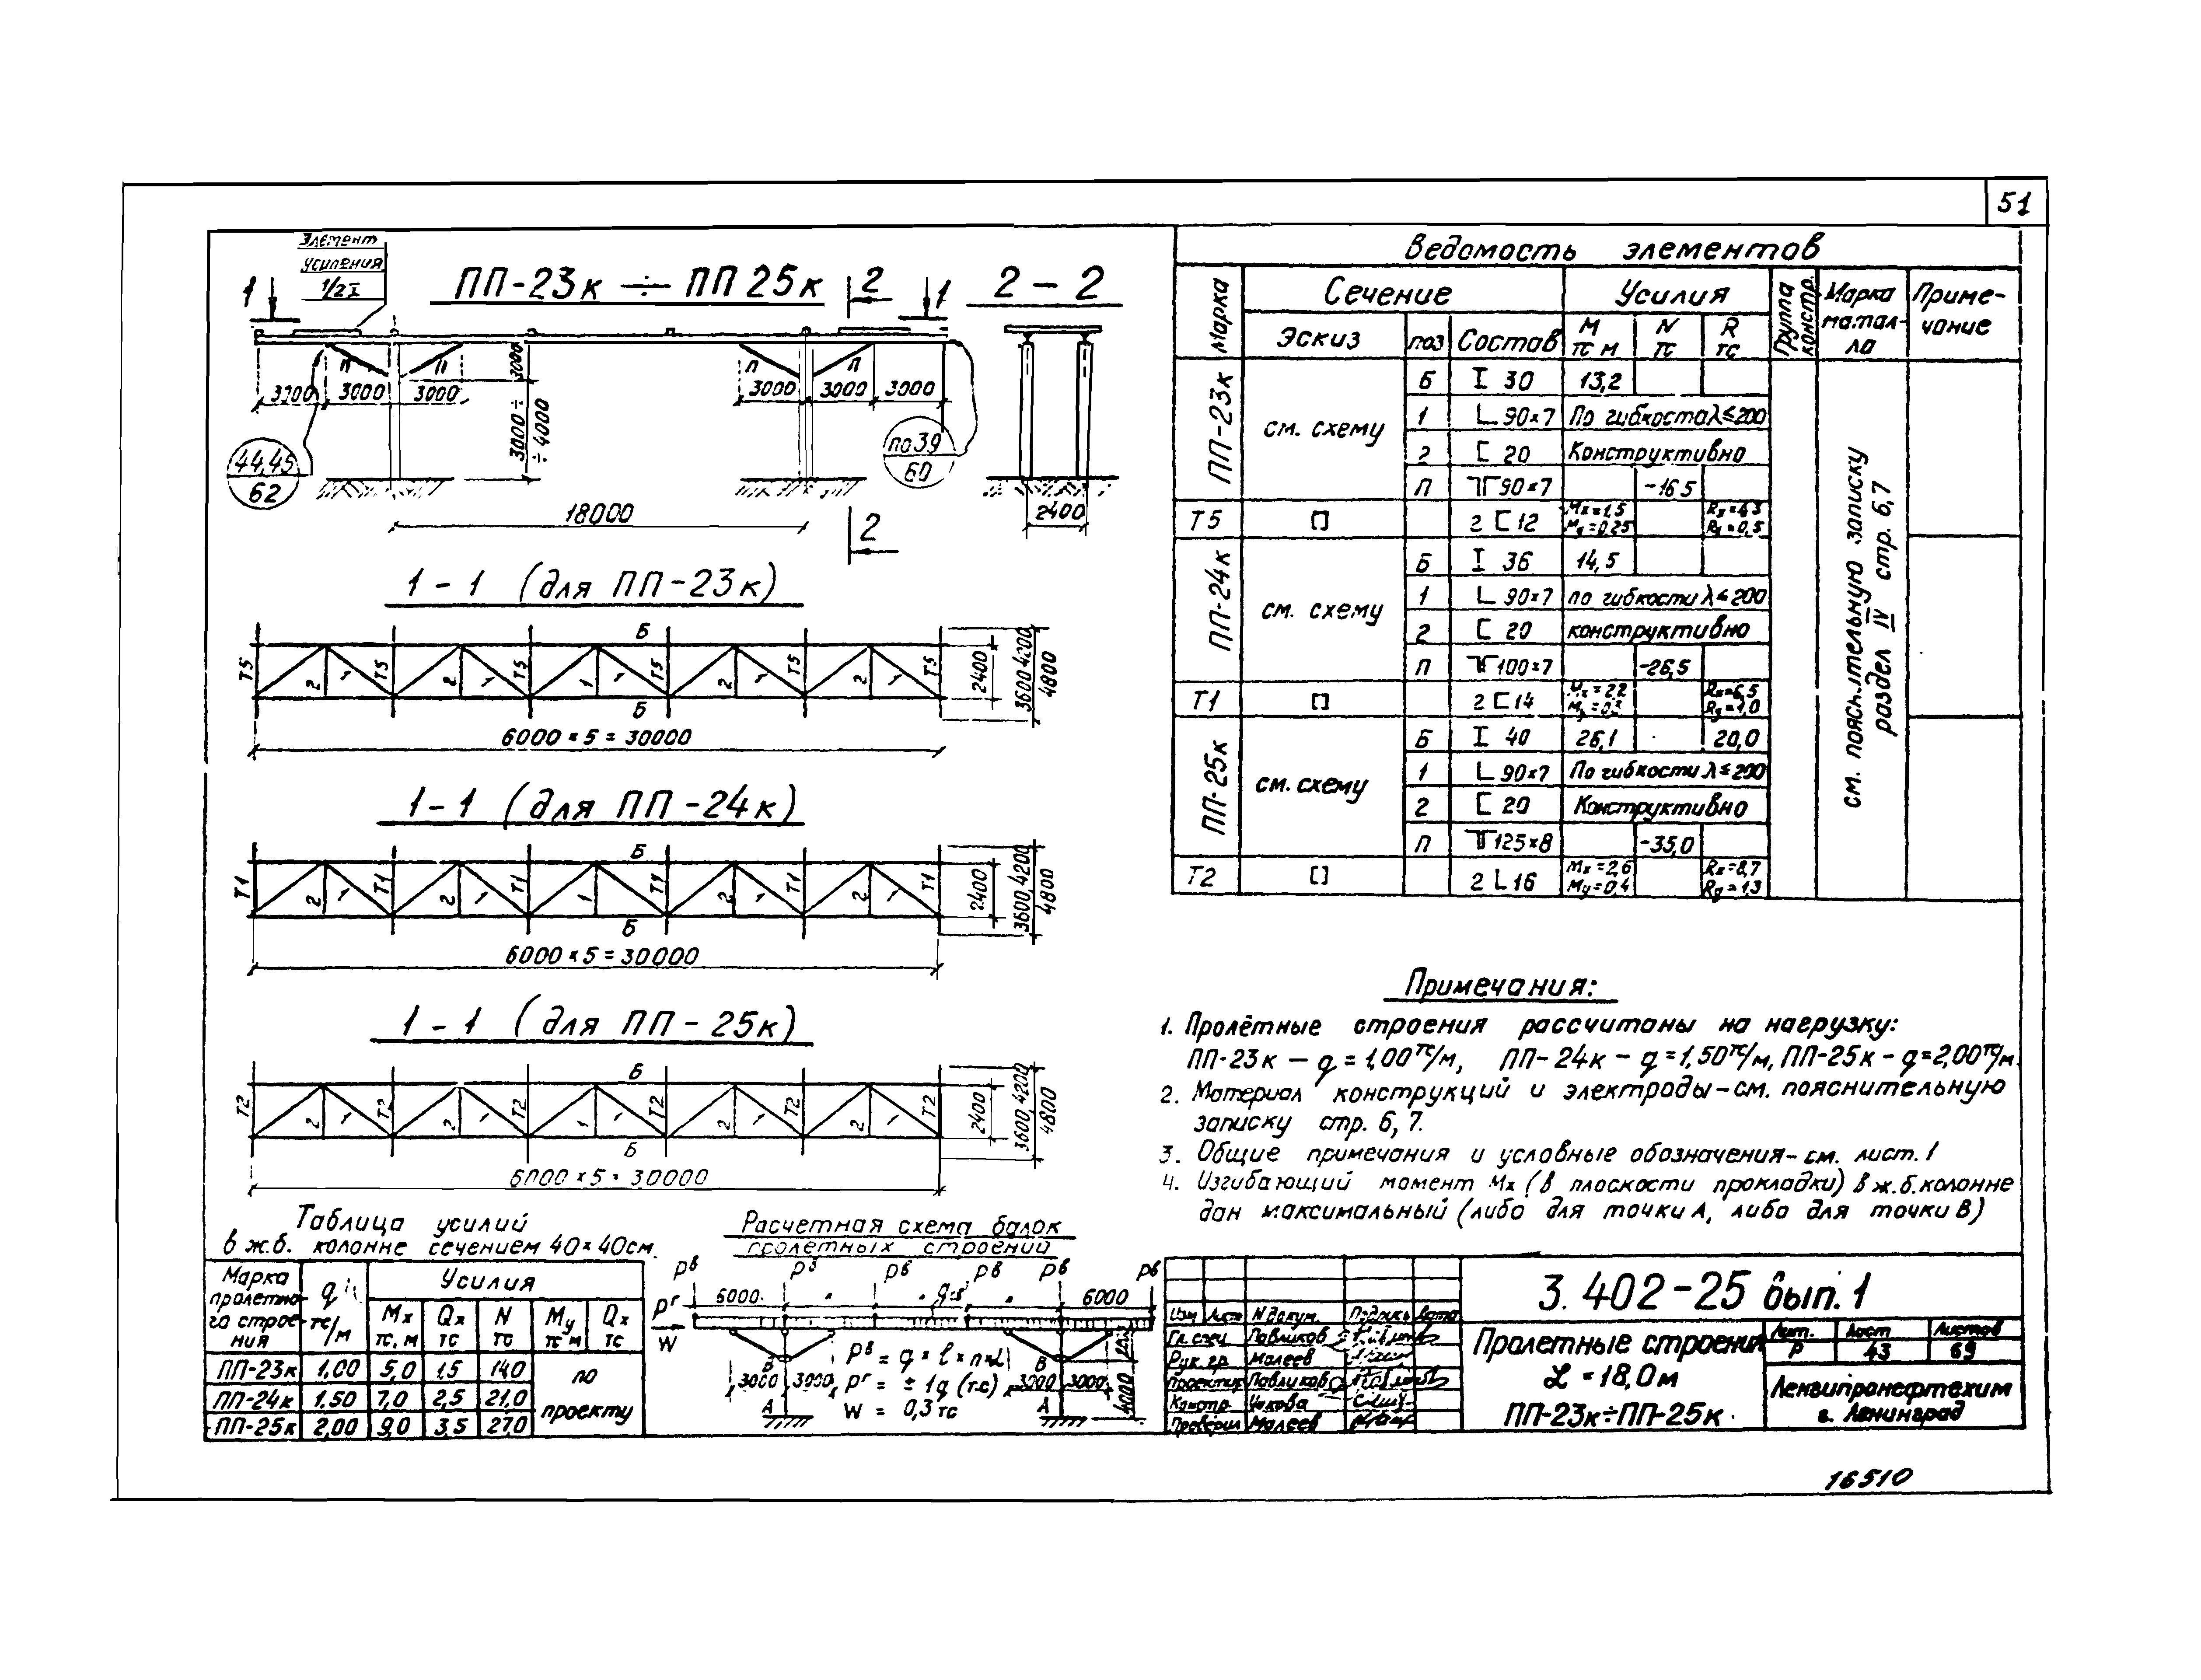 51
Элемент
усиления
1/2 I
ПП-23к ÷ ПП 25к
1
2
1
2 - 2
П
П
П
П
3000
3000
3000
3000
3000
3000
3000
3000 ÷
÷ 4000
44,45
62
по 39
60
18000
2400
2
1 - 1 (для ПП-23к)
Б
Т5 2 1 Т5 2 1 Т5 1 Т5 2 1 Т5 2 Т5
Б
2400
3600, 4200
4800
6000 × 5 = 30000
1 - 1 (для ПП-24к)
Б
Т1 2 1 Т1 2 1 Т1 1 Т1 2 1 Т1 2 Т1
Б
2400
3600, 4200
4800
6000 × 5 = 30000
1 - 1 (для ПП-25к)
Б
Т2 2 1 Т2 2 1 Т2 1 Т2 2 1 Т2 2 Т2
Б
2400
3600, 4200
4800
6000 × 5 = 30000
Ведомость элементов
Марка
Сечение
Усилия
Группа констр.
Марка метал-ла
Приме-чание
Эскиз поз Состав М тс м N тс R тс
ПП-23к см. схему
Б I 30 13,2
1 L 90×7 По гибкости λ ≤ 200
2 [ 20 Конструктивно
П ТГ 90×7 -16,5
Т5 [] 2 [ 12 Mx = 1,5 My = 0,25 Rx = 4,3 Ry = 0,5
ПП-24к см. схему
Б I 36 14,5
1 L 90×7 по гибкости λ ≤ 200
2 [ 20 конструктивно
П ТГ 100×7 -26,5
Т1 [] 2 [ 14 Mx = 2,2 Rx = 6,5 Ry = 1,0
ПП-25к см. схему
Б I 40 26,1 20,0
1 L 90×7 По гибкости λ ≤ 200
2 [ 20 Конструктивно
П ТГ 125×8 -35,0
Т2 [] 2 [ 16 Mx = 2,6 My = 0,4 Rx = 8,7 Ry = 1,3
см. пояснительную записку
раздел IV стр. 6,7
Примечания:
1. Пролётные строения рассчитаны на нагрузку:
ПП-23к – q = 1,00 тс/м, ПП-24к – q = 1,50 тс/м, ПП-25к – q = 2,00 тс/м.
2. Материал конструкций и электроды – см. пояснительную
записку стр. 6, 7.
3. Общие примечания и условные обозначения – см. лист. 1
4. Изгибающий момент Mx (в плоскости прокладки) в ж.б. колонне
дан максимальный (либо для точки А, либо для точки В)
Таблица усилий
в ж.б. колонне сечением 40×40 см.
Марка пролетно-го строе-ния
q тс/м
Усилия
Mx тс, м Qx тс N тс My тс м Qx тс
ПП-23к 1,00 5,0 1,5 14,0
ПП-24к 1,50 7,0 2,5 21,0
ПП-25к 2,00 9,0 3,5 27,0
по
проекту
Расчетная схема балок
пролетных строений
Pв Pв Pв Pв Pв Pв
6000 6000
Pг
W
В
В
3000 3000
3000 3000
А
А
4000
Pв = q × ℓ × n × α
Pг = ± 1q (тс)
W = 0,3 тс
3. 402-25 вып. 1
Изм Лист N докум. Подпись Дата
Гл. спец Павликов
Рук. гр. Малеев
Проектир Павликов
Констр.
Проверил Малеев
Пролетные строения
L = 18,0 м
ПП-23к÷ПП-25к
Лит. Лист Листов
Р 43 69
Ленгипронефтехим
г. Ленинград
16510